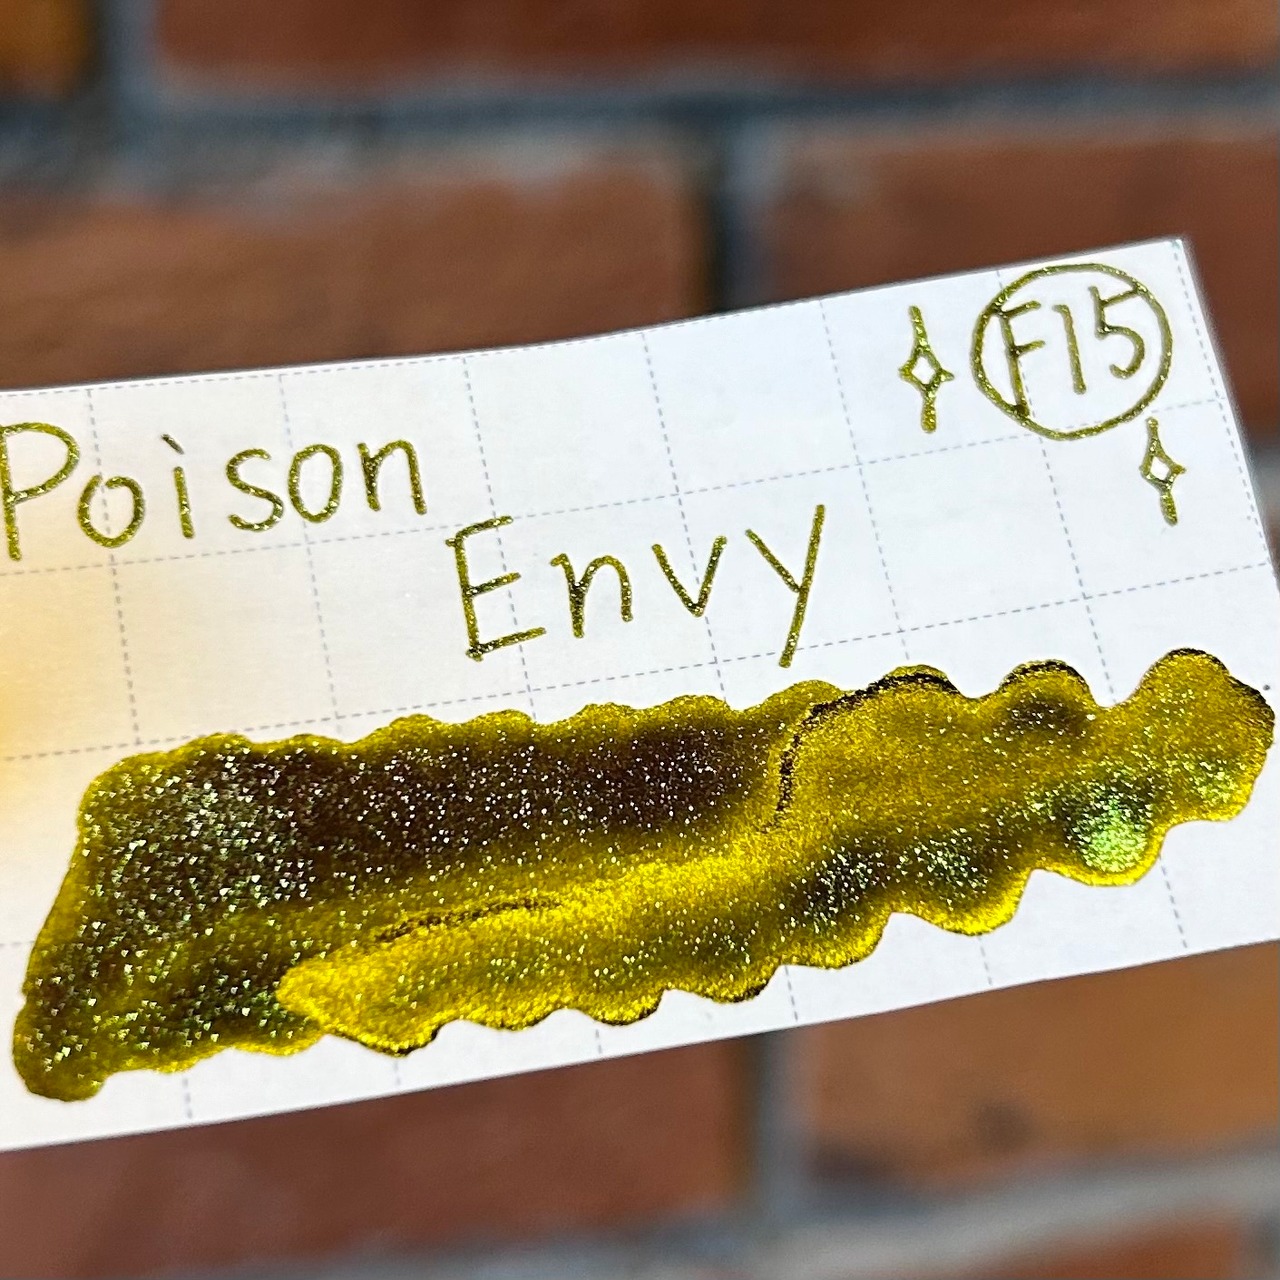 F15
Poison
Envy